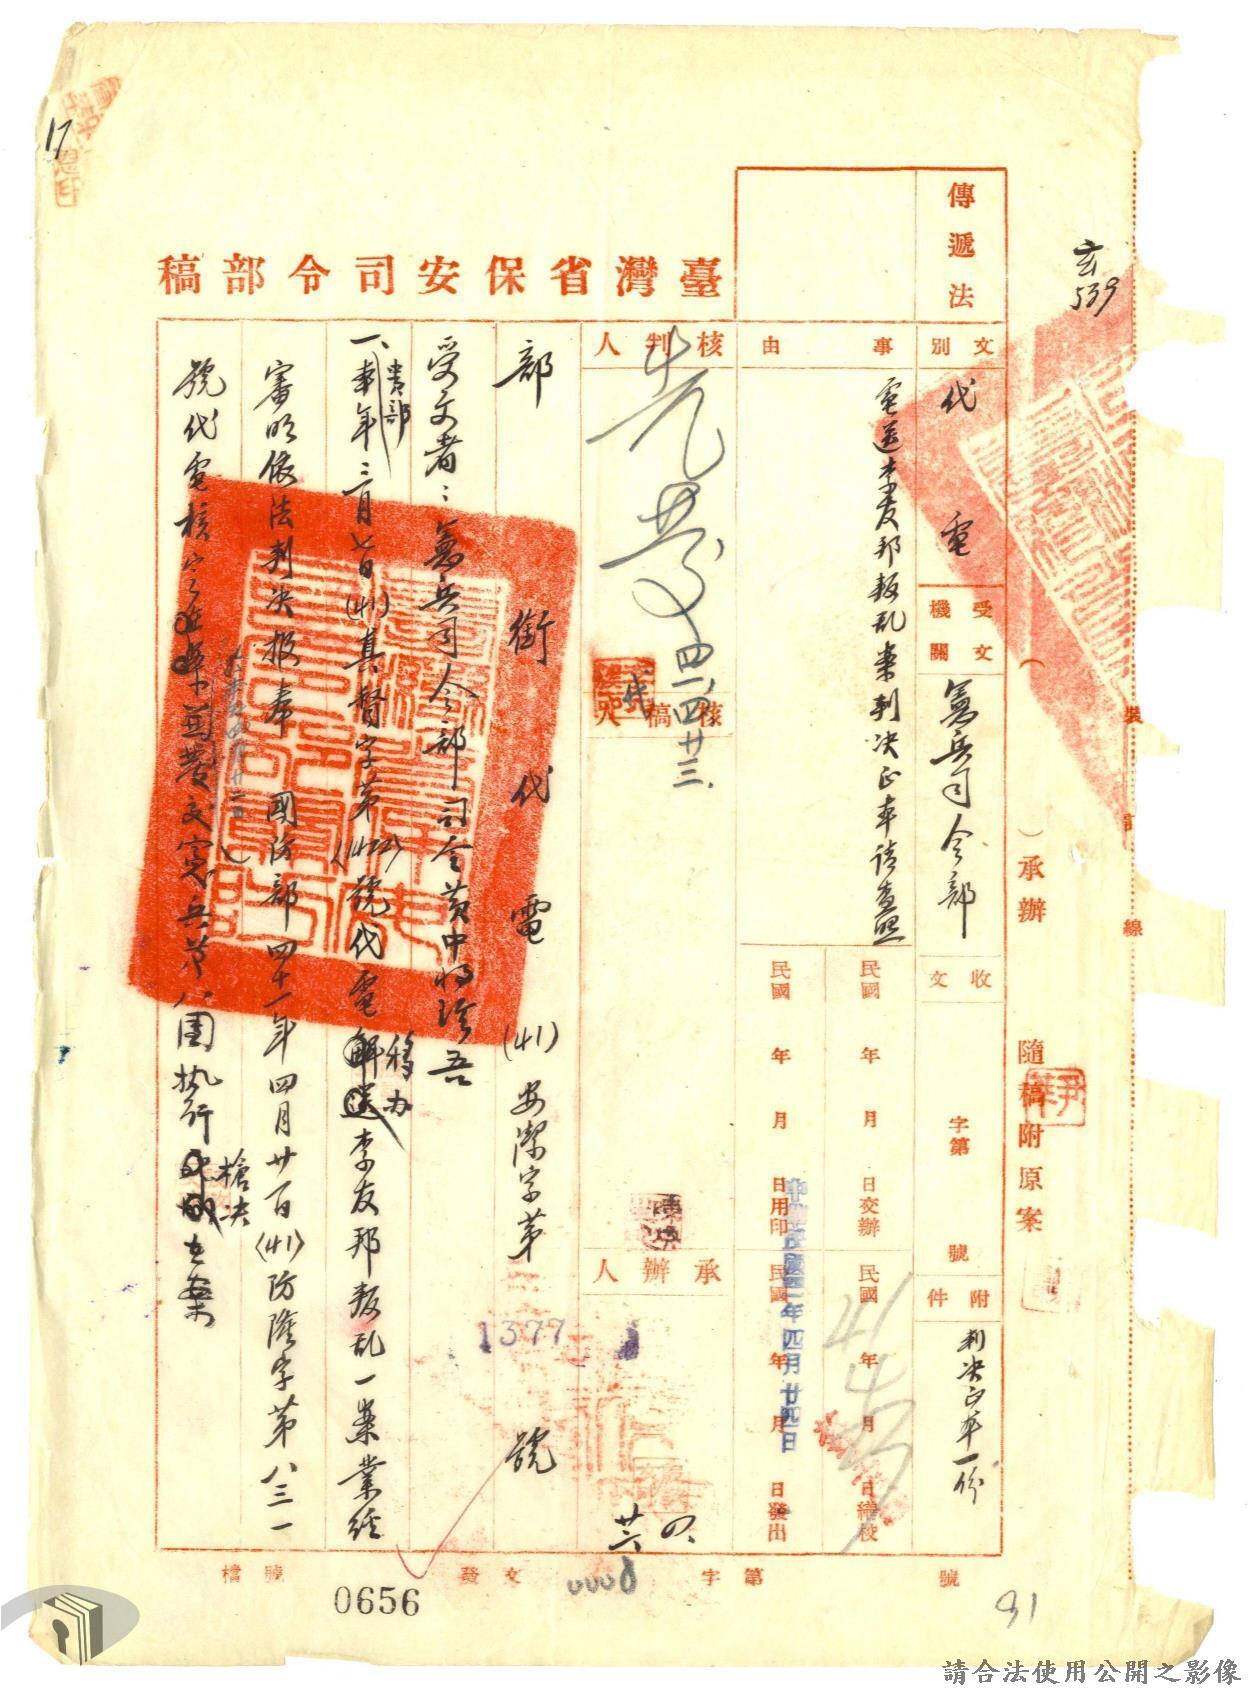 17
玄539
裝
訂
線
（　　　）承辦　隨稿附原案
傳遞法
臺灣省保安司令部稿
文別　代電
受文機關　憲兵司令部
收文　字第　號
附件　判決正本一份
事由　電送李友邦叛乱案判決正本請查照
民國　年　月　日交辦
民國　年　月　日繕校
民國　年　月　日用印
民國　年　月　日發出
中華民國四十一年四月廿四日
核判人
四一、四廿三、
核稿人
承辦人
四、廿六
部銜代電　(41)安潔字第　號
1377
受文者：憲兵司令部司令黃中將珍吾
一、貴部本年三月七日(41)真督字第(422)號代電解送移办李友邦叛乱一案業經
審明依法判決報奉　國防部四十一年四月廿一日(41)防隆字第八三一
號代電核定
憲兵第八團執行槍决在案
檔號
發文　字第　號
0656
0008
91
請合法使用公開之影像